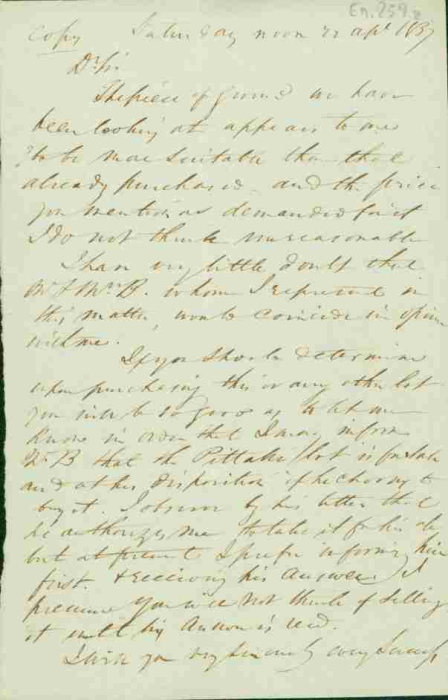 En. 259.2
Copy Saturday noon 22 apl 1837
Dr Sir
The piece of ground we have
been looking at appears to me
to be more suitable than that
already purchased and the price
you mention as demanded for it
I do not think unreasonable
I have very little doubt that
Mr & Mrs B. whom I represent in
this matter, would coincide in opinion
with me.
If you should determine
upon purchasing this or any other lot
you will be so good as to let me
know in order that I may inform
Mr B that the Pittakis lot is for sale
and at his disposition if he choose to
buy it. I observe by his letter that
he authorizes me to take it for him
but at present I prefer informing him
first & receiving his answer. I
presume you will not think of selling
it until his answer is recd.
I wish you very sincerely every success